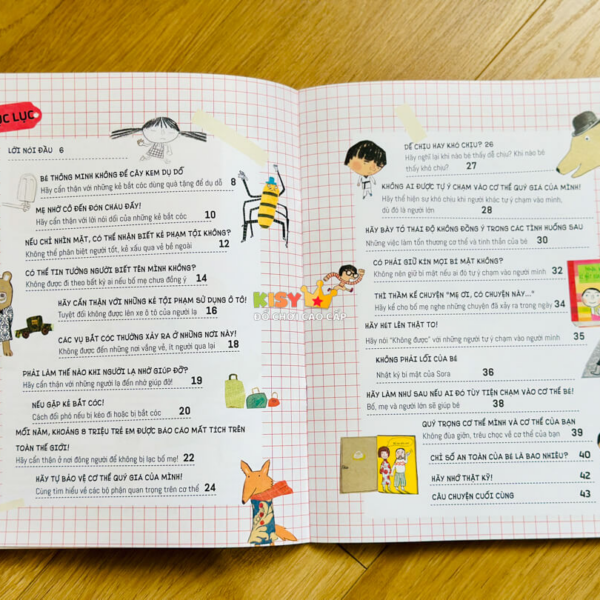 ỤC LỤC
LỜI NÓI ĐẦU 6
BÉ THÔNG MINH KHÔNG ĐỂ CÂY KEM DỤ DỖ
Hãy cẩn thận với những kẻ bắt cóc dùng quà tặng để dụ dỗ 8
MẸ NHỜ CÔ ĐẾN ĐÓN CHÁU ĐẤY!
Hãy cẩn thận với lời nói dối của những kẻ bắt cóc 10
NẾU CHỈ NHÌN MẶT, CÓ THỂ NHẬN BIẾT KẺ PHẠM TỘI KHÔNG?
Không thể phân biệt người tốt, kẻ xấu qua vẻ bề ngoài 12
CÓ THỂ TIN TƯỞNG NGƯỜI BIẾT TÊN MÌNH KHÔNG?
Không được đi theo bất kỳ ai nếu bố mẹ chưa đồng ý 14
HÃY CẨN THẬN VỚI NHỮNG KẺ TỘI PHẠM SỬ DỤNG Ô TÔ!
Tuyệt đối không được lên xe ô tô của người lạ 16
CÁC VỤ BẮT CÓC THƯỜNG XẢY RA Ở NHỮNG NƠI NÀY!
Không được đến những nơi vắng vẻ, ít người qua lại 18
PHẢI LÀM THẾ NÀO KHI NGƯỜI LẠ NHỜ GIÚP ĐỠ?
Hãy cẩn thận với những người lạ đến nhờ giúp đỡ! 19
NẾU GẶP KẺ BẮT CÓC!
Cách đối phó nếu bị kéo đi hoặc bị bắt cóc 20
MỖI NĂM, KHOẢNG 8 TRIỆU TRẺ EM ĐƯỢC BÁO CÁO MẤT TÍCH TRÊN
TOÀN THẾ GIỚI!
Hãy cẩn thận ở nơi đông người để không bị lạc bố mẹ! 22
HÃY TỰ BẢO VỆ CƠ THỂ QUÝ GIÁ CỦA MÌNH!
Cùng tìm hiểu về các bộ phận quan trọng trên cơ thể 24
KISY
ĐỒ CHƠI CAO CẤP
DỄ CHỊU HAY KHÓ CHỊU? 26
Hãy nghĩ lại khi nào bé thấy dễ chịu? Khi nào bé
thấy khó chịu? 27
KHÔNG AI ĐƯỢC TỰ Ý CHẠM VÀO CƠ THỂ QUÝ GIÁ CỦA MÌNH!
Hãy thể hiện sự khó chịu khi người khác tự ý chạm vào mình,
dù đó là người lớn 28
HÃY BÀY TỎ THÁI ĐỘ KHÔNG ĐỒNG Ý TRONG CÁC TÌNH HUỐNG SAU
Những việc làm tổn thương cơ thể và tinh thần của bé 30
CÓ PHẢI GIỮ KÍN MỌI BÍ MẬT KHÔNG?
Không nên giữ bí mật nếu ai đó tự ý chạm vào người mình 32
THÌ THẦM KỂ CHUYỆN "MẸ ƠI, CÓ CHUYỆN NÀY..."
Hãy kể cho bố mẹ nghe những chuyện đã xảy ra trong ngày 34
HÃY HÉT LÊN THẬT TO!
Hãy nói "Không được" với những người tự ý chạm vào người mình 35
KHÔNG PHẢI LỖI CỦA BÉ
Nhật ký bí mật của Sora 36
HÃY LÀM NHƯ SAU NẾU AI ĐÓ TÙY TIỆN CHẠM VÀO CƠ THỂ BÉ!
Bố, mẹ và người lớn sẽ giúp bé 38
QUÝ TRỌNG CƠ THỂ MÌNH VÀ CƠ THỂ CỦA BẠN
Không đùa giỡn, trêu chọc về cơ thể của bạn 39
CHỈ SỐ AN TOÀN CỦA BÉ LÀ BAO NHIÊU? 40
HÃY NHỚ THẬT KỸ! 42
CÂU CHUYỆN CUỐI CÙNG 43